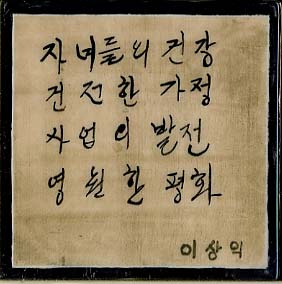 자녀들의 건강
건전한 가정
사업의 발전
영원한 평화
이상익